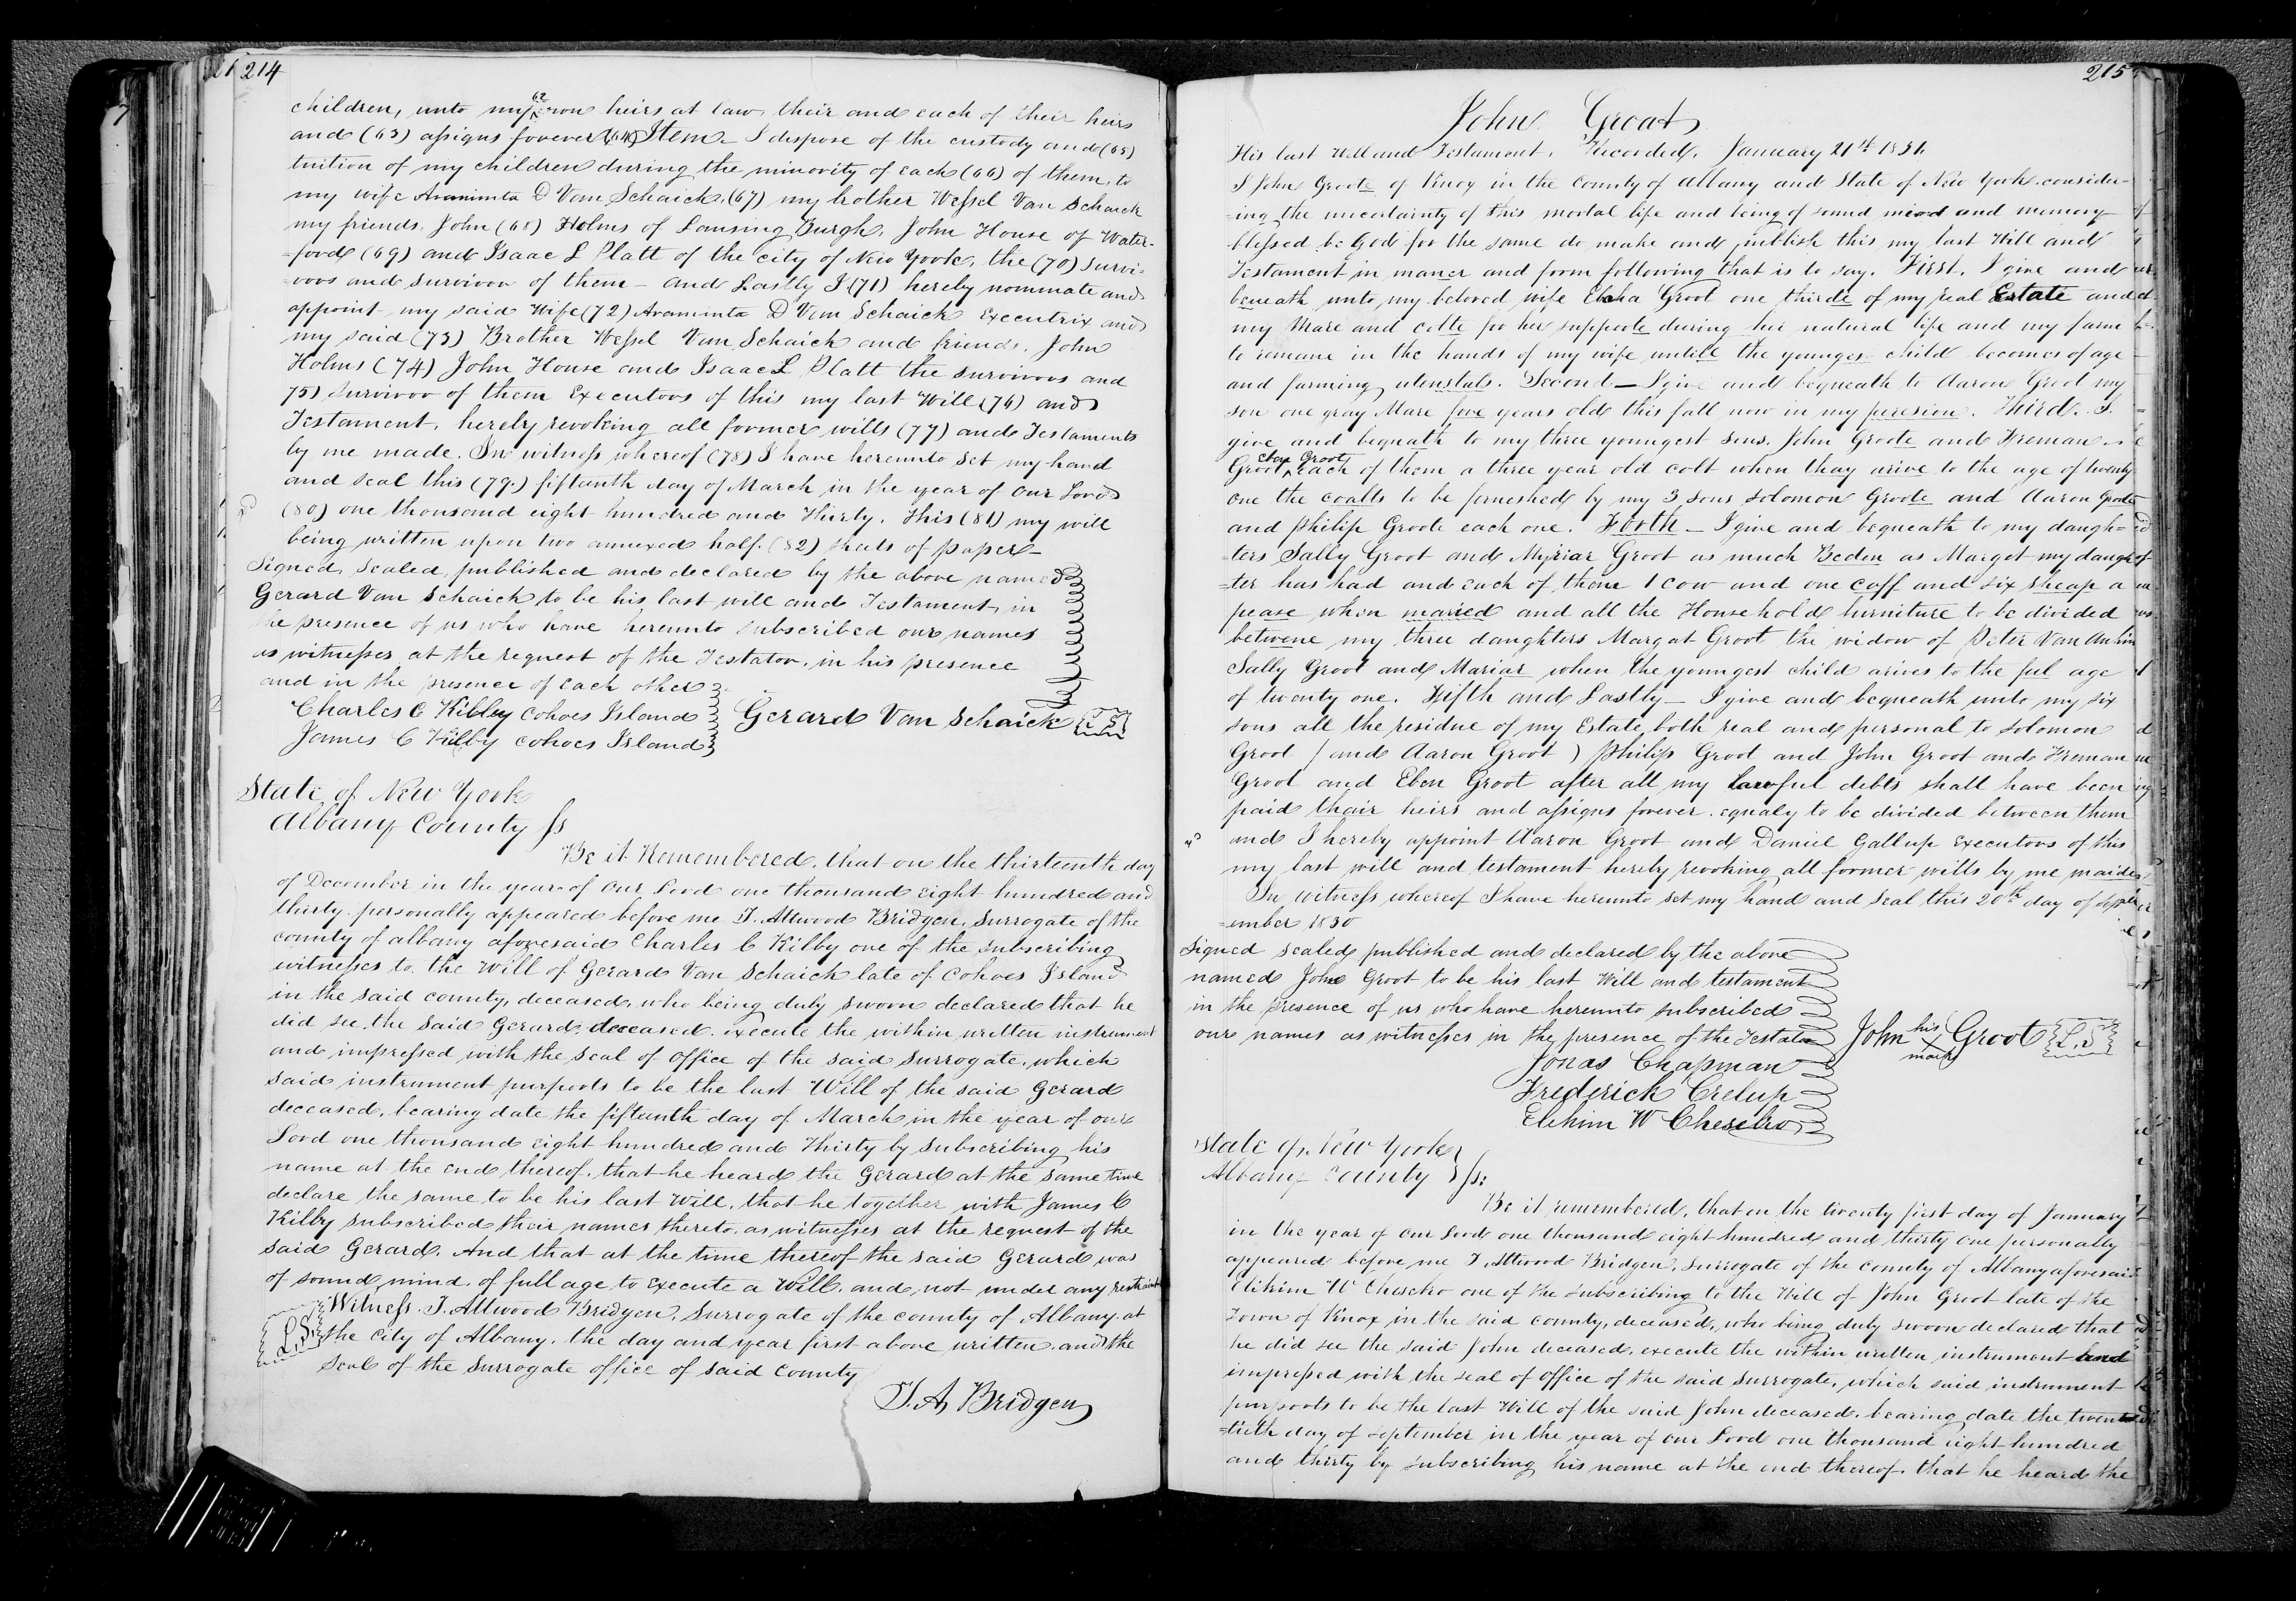 214
children, unto my 62 own heirs at law, their and each of their heirs
and (63) assigns forever (64) Item - I dispose of the custody and (65)
tuition of my children during the minority of each (66) of them, to
my wife Araminta D Van Schaick, (67) my brother Wessel Van Schaick
my friends, John (68) Holms of Lansing Burgh, John House of Water-
-ford (69) and Isaac L Platt of the city of New York, the (70) survi-
-vors and survivor of them - and Lastly I (71) hereby nominate and
appoint my said Wife (72) Araminta D Van Schaick Executrix and
my said (73) Brother Wessel Van Schaick and friends, John
Holms (74) John House and Isaac L Platt the survivors and
75) survivor of them Executors of this my last Will (76) and
Testament, hereby revoking all former wills (77) and Testaments
by me made. In witness whereof (78) I have hereunto set my hand
and seal this (79.) fifteenth day of March in the year of our Lord
(80) one thousand eight hundred and Thirty. This (81) my will
being written upon two annexed half. (82) sheets of paper -
Signed, sealed, published and declared by the above named
Gerard Van Schaick to be his last will and Testament, in
the presence of us who have hereunto subscribed our names
as witnesses at the request of the Testator, in his presence
and in the presence of each other
Charles C Kilby Cohoes Island
Gerard Van Schaick L S
James C Kilby Cohoes Island
State of New York
Albany County ss
Be it Remembered, that on the thirteenth day
of December in the year of our Lord one thousand eight hundred and
thirty personally appeared before me T. Attwood Bridgen, Surrogate of the
county of albany aforesaid Charles C Kilby one of the subscribing
witnesses to the Will of Gerard Van Schaick late of Cohoes Island
in the said county, deceased, who being duly sworn declared that he
did see the said Gerard, deceased, execute the within written instrument
and impressed with the seal of office of the said surrogate, which
said instrument purports to be the last Will of the said Gerard
deceased, bearing date the fifteenth day of March in the year of our
Lord one thousand eight hundred and Thirty by subscribing his
name at the end thereof, that he heard the Gerard at the same time
declare the same to be his last Will, that he together with James C
Kilby subscribed their names thereto, as witnesses at the request of the
said Gerard. And that at the time thereof the said Gerard was
of sound mind, of full age to execute a Will, and not under any restraint
Witness T. Attwood Bridgen, Surrogate of the county of Albany, at
L.S. the City of Albany, the day and year first above written, and the
Seal of the Surrogate office of said County
T. A Bridgen
215
John Groat
His last Will and Testament. Recorded, January 21st 1831.
I John Groote of Knox in the County of Albany and State of New York, consider-
-ing the uncertainty of this mortal life and being of sound mind and memory
blessed be God for the same do make and publish this my last Will and
Testament in maner and form following that is to say. First, I give and
beneath unto my beloved wife Elcha Groot one thirde of my real Estate and
my Mare and colte for her supporte during her natural life and my farm
to remane in the hands of my wife untill the younges child becomes of age
and farming utenstuls. Second - I give and bequeath to Aaron Groot my
son one gray Mare five years old this fall now in my peresion. Third. I
give and bequath to my three youngest sons, John Groote and Freman
Groot, eben Groot each of them a three year old colt when thay arive to the age of twenty
one the coalts to be furneshed by my 3 sons Solomon Groote and Aaron Groote
and Philip Groote each one. Forth - I give and bequeath to my daugh-
-ters Sally Groot and Myriar Groot as much Beden as Margot my daugh-
-ter has had and each of them 1 cow and one caff and six sheap a
pease when maried and all the Household furniture to be divided
betwene my three daughters Margat Groot the widow of Peter Van
Sally Groot and Mariar when the youngest child arives to the ful age
of twenty one. Fifth and Lastly - I give and bequeath unto my six
sons all the residue of my Estate, both real and personal to Solomon
Groot / and Aaron Groot ) Philip Groot and John Groot and Freman
Groot and Eben Groot after all my lawful debts shall have been
paid thair heirs and assigns forever. equaly to be divided between them
and I hereby appoint Aaron Groot and Daniel Gallup Executors of this
my last will and testament hereby revoking all former wills by me maide
In witness whereof I have hereunto set my hand and seal this 20th day of Sept-
-ember 1830
Signed sealed published and declared by the above
named John Groot to be his last Will and testament
in the presence of us who have hereunto subscribed
our names as witnesses in the presence of the Testator
John his X mark Groot L.S
Jonas Chapman
Frederick Crelup
Elihim W Chesebro
State of New York
Albany County ss:
Be it remembered, that on the twenty first day of January
in the year of our Lord one thousand eight hundred and thirty one personally
appeared before me T. Attwood Bridgen, Surrogate of the county of Albany aforesaid
Elihim W Chesebro one of the subscribing to the Will of John Groot late of the
Town of Knox in the said county, deceased, who being duly sworn declared that
he did see the said John deceased, execute the within written instrument and
impressed with the seal of office of the said surrogate, which said instrument
purports to be the last Will of the said John deceased, bearing date the twen-
-tieth day of September in the year of our Lord one thousand eight hundred
and thirty by subscribing his name at the end thereof, that he heard the